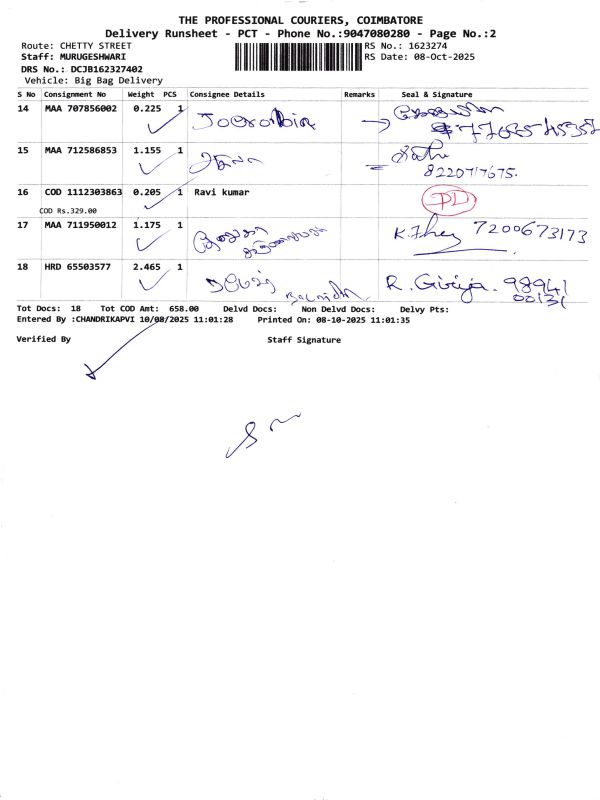 THE PROFESSIONAL COURIERS, COIMBATORE
Delivery Runsheet - PCT - Phone No.:9047080280 - Page No.:2
Route: CHETTY STREET RS No.: 1623274
Staff: MURUGESHWARI RS Date: 08-Oct-2025
DRS No.: DCJB162327402
Vehicle: Big Bag Delivery
S No Consignment No Weight PCS Consignee Details Remarks Seal & Signature
14 MAA 707856002 0.225 1
15 MAA 712586853 1.155 1
8220717675.
16 COD 1112303863 0.205 1 Ravi kumar PD
COD Rs.329.00
17 MAA 711950012 1.175 1 7200673173
18 HRD 65503577 2.465 1 R. Girija. 98941
00131
Tot Docs: 18 Tot COD Amt: 658.00 Delvd Docs: Non Delvd Docs: Delvy Pts:
Entered By :CHANDRIKAPVI 10/08/2025 11:01:28 Printed On: 08-10-2025 11:01:35
Verified By Staff Signature